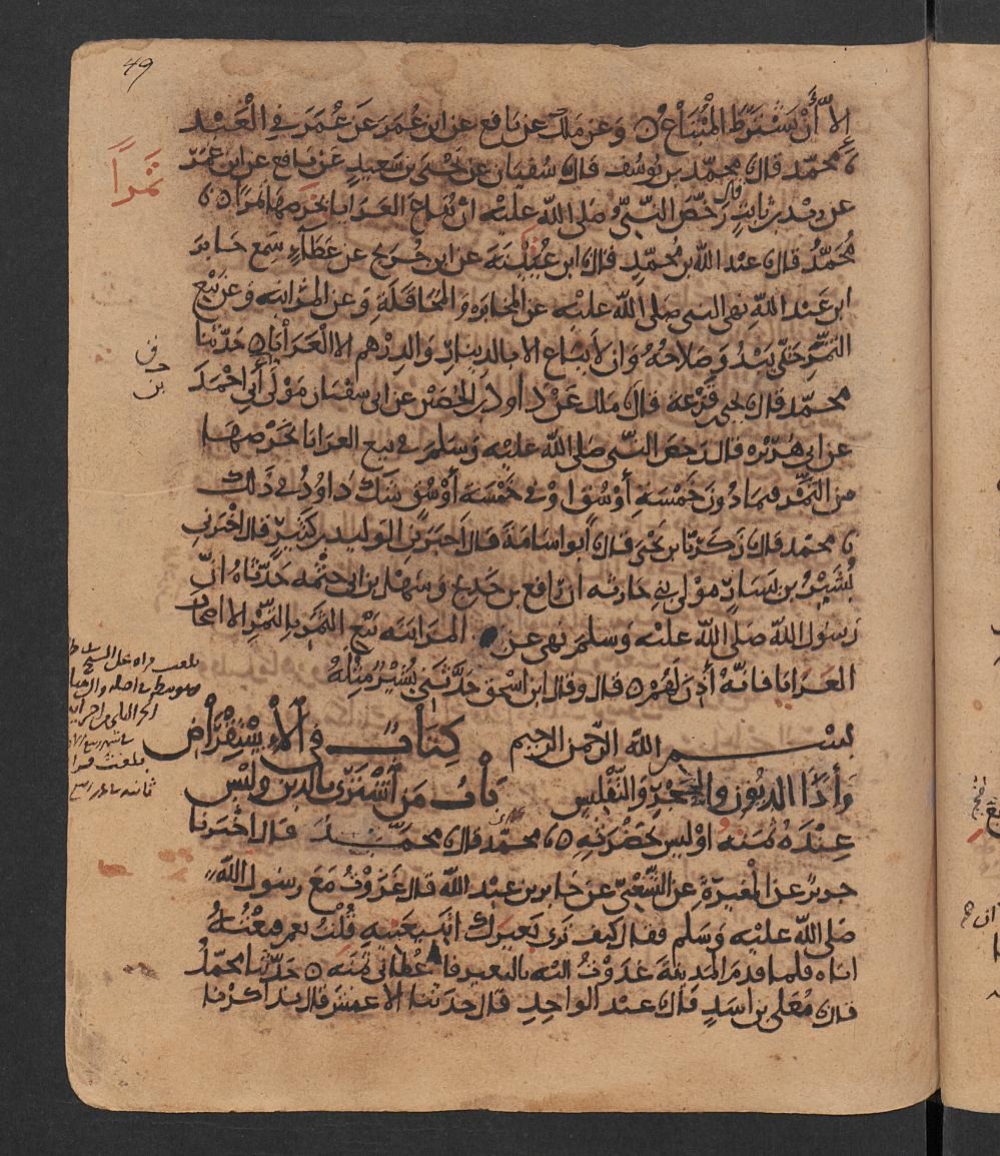 49
إلا أن يشترط المبتاع ۝ وعن ملك عن نافع عن ابن عمر عن عمر في العبد
نا محمد قال نا محمد بن يوسف قال نا سفيان عن يحيى بن سعيد عن نافع عن ابن عمر
تمرا
عن زيد بن ثابت قال رخص النبي صلى الله عليه ان تباع العرايا بخرصها تمرا ۝ نا
محمد قال نا عبد الله بن محمد قال نا ابن عيينة عن ابن جريج عن عطاء سمع جابر
ابن عبد الله نهى النبي صلى الله عليه عن المخابرة والمحاقلة وعن المزابنة وعن بيع
الثمر حتى يبدو صلاحه وان لا يباع الا بالدينار والدرهم الا العرايا ۝ حدثنا
محمد قال نا يحيى بن قزعة قال نا ملك عن داود بن الحصين عن ابي سفيان مولى أبي احمد
عن ابي هريرة قال رخص النبي صلى الله عليه وسلم في بيع العرايا بخرصها
من التمر فيما دون خمسة أوسق او في خمسة أوسق شك داود في ذلك
نا محمد قال نا زكريا بن يحيى قال نا أبو اسامة قال أخبرني الوليد بن كثير قال اخبرني
بشير بن يسار مولى بني حارثة ان رافع بن خديج وسهل بن ابي حثمة حدثاه ان
رسول الله صلى الله عليه وسلم نهى عن المزابنة بيع الثمر بالتمر الا اصحاب
العرايا فانه أذن لهم ۝ قال وقال ابن اسحق حدثني بشير مثله
بسم الله الرحمن الرحيم كتاب في الاستقراض
وأداء الديون والحجر والتفليس باب من اشترى بالدين وليس
عنده ثمنه او ليس بحضرته ۝ نا محمد قال نا محمد قال اخبرنا
جرير عن المغيرة عن الشعبي عن جابر بن عبد الله قال غزوت مع رسول الله
صلى الله عليه وسلم فقال كيف ترى بعيرك اتبيعنيه قلت نعم فبعته
اياه فلما قدم المدينة غدوت اليه بالبعير فأعطاني ثمنه ۝ حدثنا محمد
قال نا معلى بن اسد قال نا عبد الواحد قال حدثنا الاعمش قال تذاكرنا